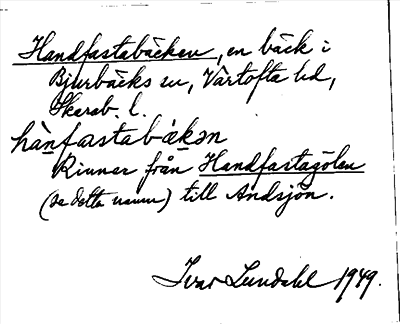 Handfastabäcken, en bäck i
Bjurbäcks sn, Vartofta hd,
Skarab. l.
hànfastabækən
Rinner från Handfastagölen
(se detta namn) till Andsjön.
Ivar Lundahl 1949.